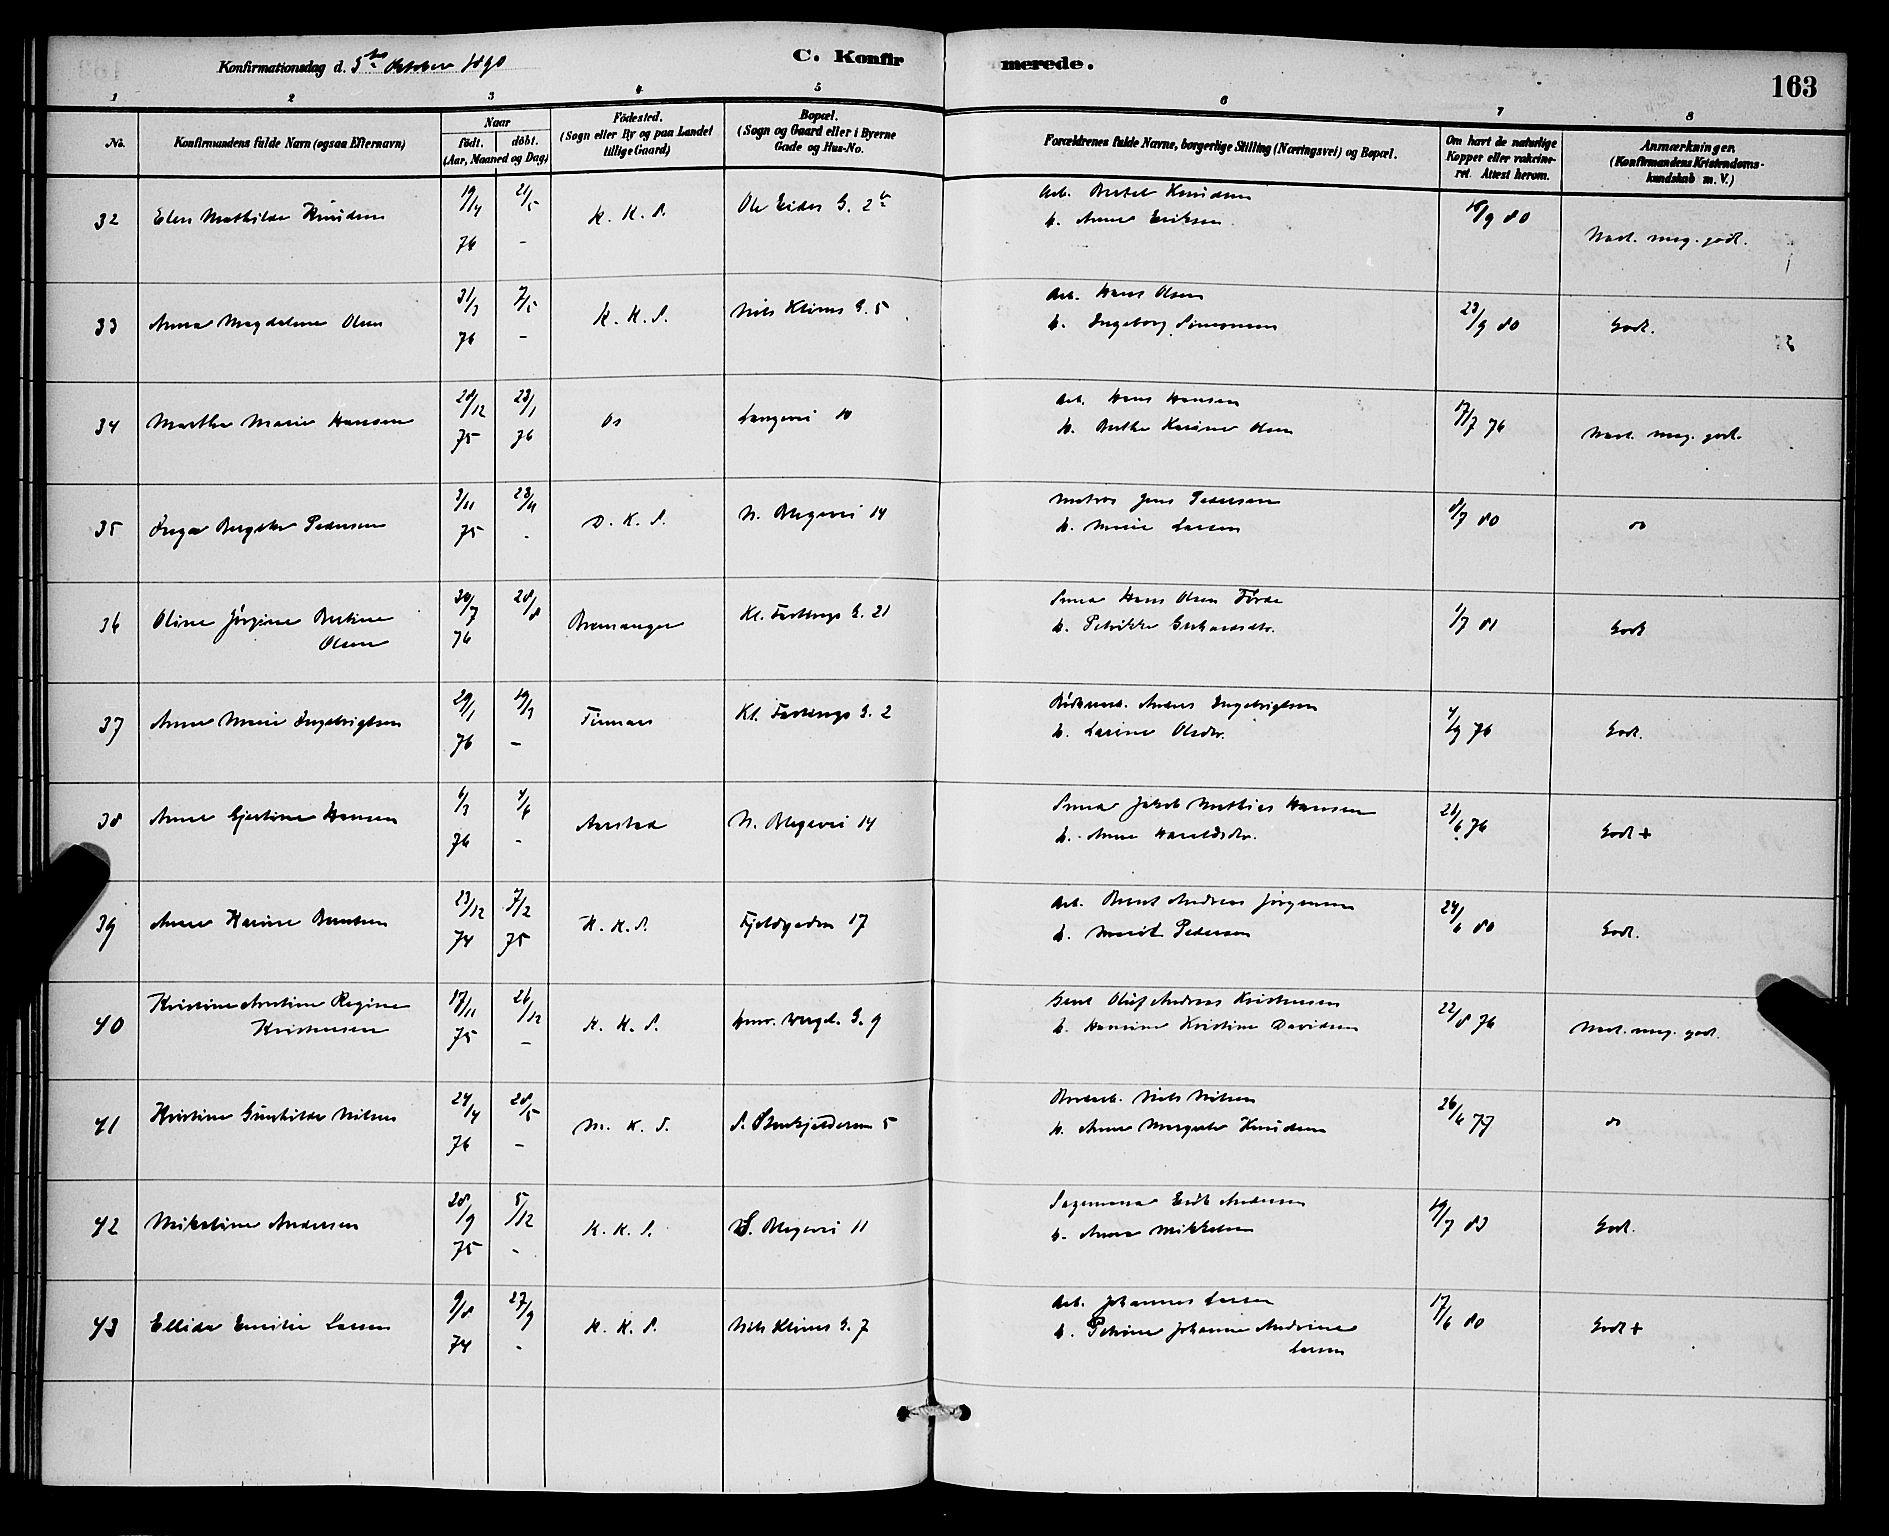 Konfirmationsdag d. 5te Oktober 1890
C. Konfirmerede.
163
1 2 3 4 5 6 7 8
No.
Konfirmandens fulde Navn (ogsaa Efternavn)
Naar
födt. döbt.
(Aar, Maaned og Dag)
Födested.
(Sogn eller By og paa Landet
tillige Gaard)
Bopæl.
(Sogn og Gaard eller i Byerne
Gade og Hus-No.
Forældrenes fulde Navne, borgerlige Stilling (Næringsvei) og Bopæl.
Om havt de naturlige
Kopper eller vakcine-
ret. Attest herom.
Anmærkninger.
(Konfirmandens Kristendoms-
kundskab m. V.)
32 Elen Mathilde Knudsen 19/4 76 21/5 - K. K. S. Ole Eides G. 2b Arb. Bertel Knudsen 18/9 80 Næst. meg. godt.
h. Anna Eriksen
33 Anna Magdalene Olsen 31/3 76 7/5 - K. K. S. Niels Klims G. 5 Arb. Hans Olsen 23/9 80 Godt.
h. Ingeborg Simonsen
34 Marthe Marie Hansen 28/12 75 23/1 76 Os Langevei 10 Arb. Hans Hansen 17/7 76 Næst. meg. godt.
h. Berthe Karine Olsen
35 Inga Bergithe Pedersen 3/11 75 28/11 - D. K. S. N. Blegevei 14 Matros Jens Pedersen 8/7 80 do
h. Marie Larsen
36 Oline Jörgine Bertine 30/7 76 20/8 Bremanger Kl. Fortungs G. 21 Hans Olsen Förde 1/7 81 Godt
Olsen h. Petrikke Gerhardsdtr.
37 Anna Marie Ingebrigtsen 29/1 76 19/3 - Finnaas G. 2 Anders Ingebrigtsen 4/9 76 Godt.
h. Larine Olsdtr.
38 Anna Gjertine Hansen 6/3 76 4/6 - Aarstad N. Blegevei 14 Jakob Mathias Hansen 28/6 76 Godt +
h. Anna Haraldsdtr.
39 Anna Karine Berntsen 23/12 74 7/2 75 K. K. S. Fjeldgaden 17 Arb. Bernt Andreas Jörgensen 24/6 80 Godt.
h. Marit Pedersen
40 Kristine Regine 17/11 75 26/12 - K. K. S. Henr. Wergel. G. 9 Oluf Andreas Kristensen 22/8 76 Næst. meg. godt.
Kristensen h. Hansine Kristine Davidsen
41 Kristine Gunhilde Nilsen 24/4 76 28/5 - N. K. S. 5 Niels Nilsen 26/6 77 do
h. Anna Margrete Knudsen
42 Mikeline Andersen 28/9 75 5/12 - K. K. S. S. Blegevei 11 Erik Andersen 19/7 83 Godt.
h. Anna Mikkelsen
43 Ellida Emilie Larsen 9/8 74 27/9 - K. K. S. Niels Klims G. 7 Arb. Johannes Larsen 17/6 80 Godt +
h. Petrine Johanne Andrine
Larsen